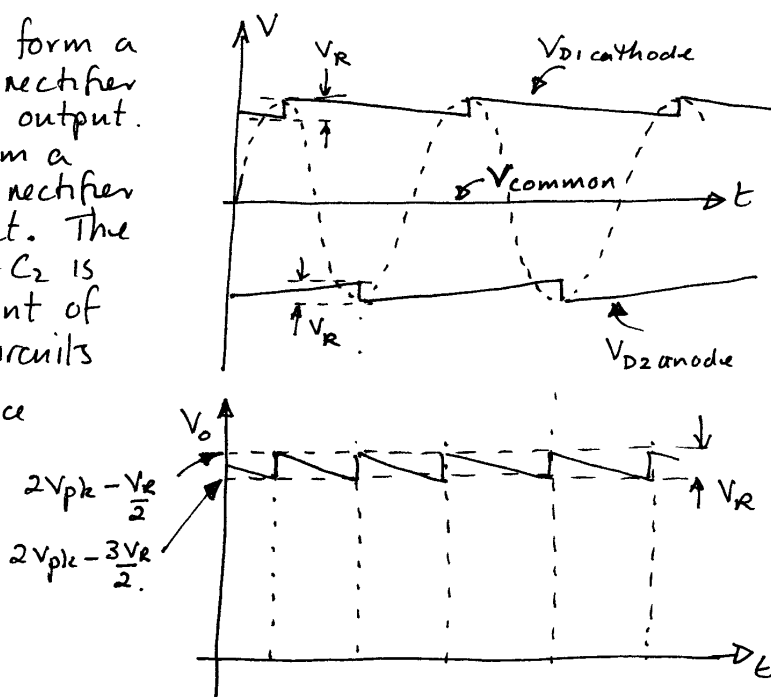 form a
rectifier
output.
m a
rectifier
t. The
C₂ is
nt of
rcuits
ce
V
V_R
V_D1 cathode
V_common
t
V_R
V_D2 anode
V_o
2V_pk - V_R/2
2V_pk - 3V_R/2.
V_R
t